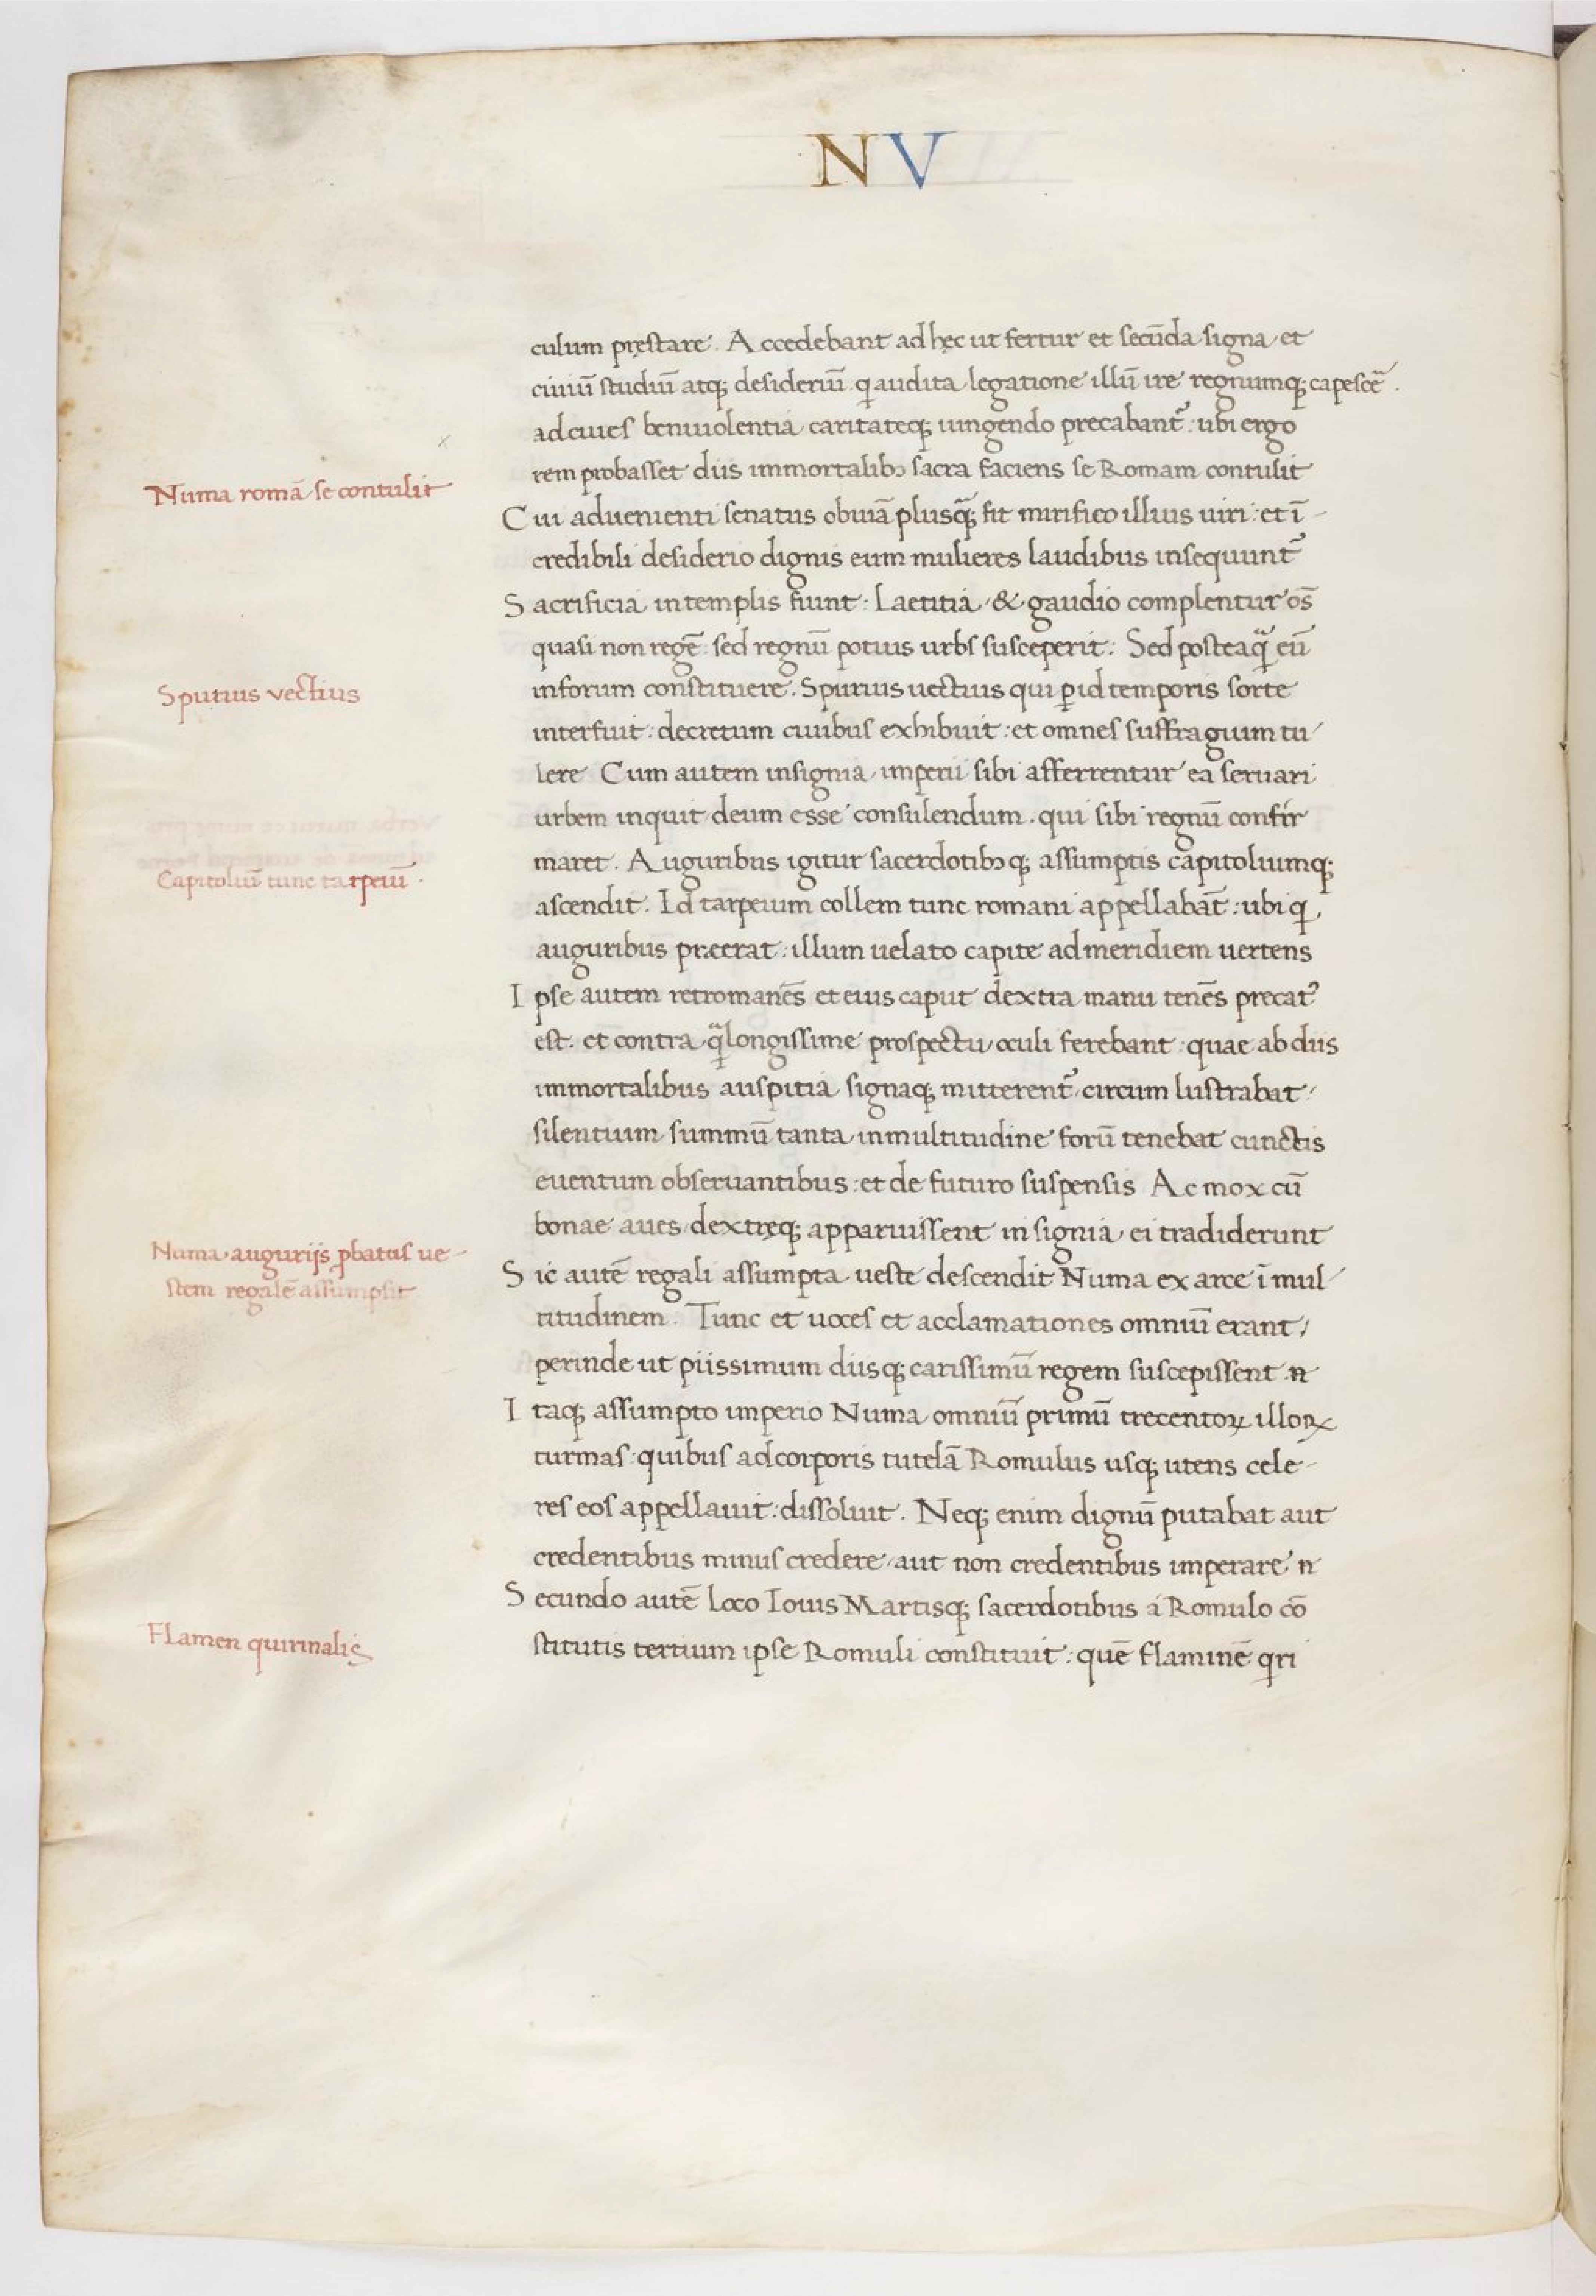 NV
culum pręstare. Accedebant ad hęc ut fertur et secūda signa et
ciuiū studiū atq; desideriū qͥ audita legatione illū ire regnumq; capescē.
ad ciues beniuolentia caritateq; iungendo precabantᷣ: ubi ergo
rem probasset diis immortalibꝫ sacra faciens se Romam contulit
Numa romā se contulit
Cui aduenienti senatus obuiā plusqᷓ; fit mirifico illius uiri: et ī-
credibili desiderio dignis eum mulieres laudibus insequuntᷣ
Sacrificia in templis fiunt: Laetitia & gaudio complentur os̄
quasi non regē: sed regnū potius urbs susceperit: Sed posteaqᷓ eū
Spurius vectius
in forum constituere. Spurius uectius qui ꝑ id temporis sorte
interfuit: decretum ciuibus exhibuit: et omnes suffragium tu-
lere Cum autem insignia imperii sibi afferrentur ea seruari
urbem inquit deum esse consulendum. qui sibi regnū confir
maret. Auguribus igitur sacerdotibꝫq; assumptis capitoliumq;
Capitoliū tunc tarpeiū.
ascendit. Id tarpeium collem tunc romani appellabāt: ubi qͥ
auguribus praeerat: illum uelato capite ad meridiem uertens
Ipse autem retromanēs et eius caput dextra manu tenēs precatꝰ
est. et contra qᷓ longissime prospectu oculi ferebant: quae ab diis
immortalibus auspitia signaq; mitterentᷣ circum lustrabat:
silentium summū tanta in multitudine forū tenebat cunctis
euentum obseruantibus: et de futuro suspensis Ac mox cū
bonae aues dextręq; apparuissent insignia ei tradiderunt
Numa augurijs ꝓbatus ue-
stem regalē assumpsit
Sic autē regali assumpta ueste descendit Numa ex arce ī mul-
titudinem. Tunc et uoces et acclamationes omniū erant/
perinde ut piissimum diisq; carissimū regem suscepissent n
Itaq; assumpto imperio Numa omniū primū trecentoꝝ illoꝝ
turmas: quibus ad corporis tutelā Romulus usq; utens cele-
res eos appellauit: dissoluit. Neq; enim dignū putabat aut
credentibus minus credere aut non credentibus imperare n
Secundo autē loco Iouis Martisq; sacerdotibus a Romulo cō
Flamen quirinalis
stitutis tertium ipse Romuli constituit: quē flaminē qͥri